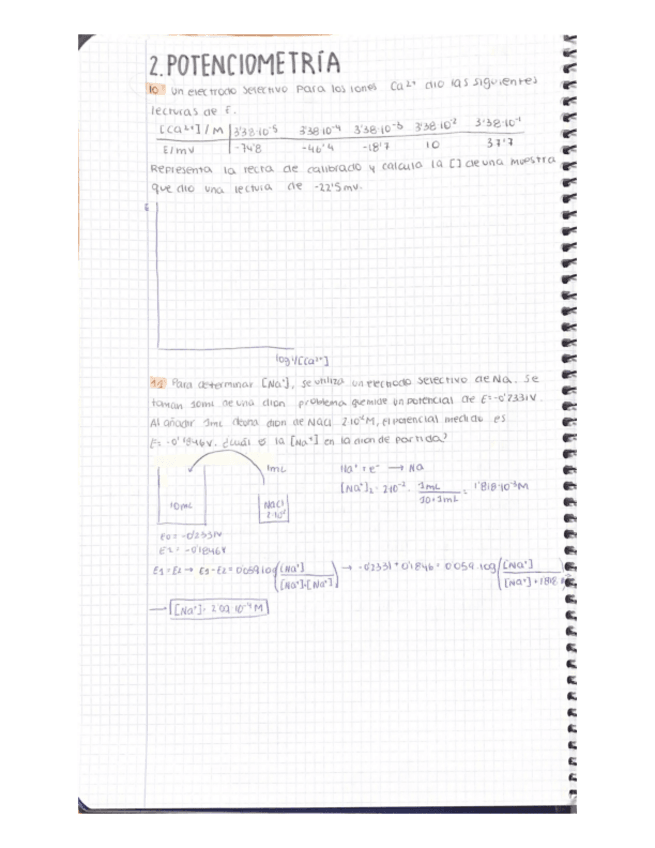 2. POTENCIOMETRÍA
10 Un electrodo selectivo para los iones Ca²⁺ dio las siguientes
lecturas de E.
[Ca²⁺] / M 3'38·10⁻⁵ 3'38·10⁻⁴ 3'38·10⁻³ 3'38·10⁻² 3'38·10⁻¹
E/mv -74'8 -46'4 -18'7 10 37'7
Representa la recta de calibrado y calcula la [] de una muestra
que dio una lectura de -22'5mv.
E
log 1/[Ca²⁺]
Para determinar [Na⁺], se utiliza un electrodo selectivo de Na. Se
toman de una dion problema que mide un potencial de E=-0'2331V.
Al añadir 1mL de una dion de NaCl 2·10⁻²M, el potencial medido es
E= -0'1846V. ¿cuál es la [Na⁺] en la dion de partida?
1mL
Na⁺ + e⁻ → Na
[Na⁺]₂ = 2·10⁻² · 1mL / 10+1mL = 1'818·10⁻³M
10mL
NaCl
2·10⁻²
E0= -0'2331V
E2= -0'1846V
E1=E2 → E1-E2= 0'059·log([Na⁺] / [Na⁺]+[Na⁺]) → -0'2331+0'1846= 0'059·log([Na⁺] / [Na⁺]+1'818
→ [Na⁺]= 2'02·10⁻⁴M